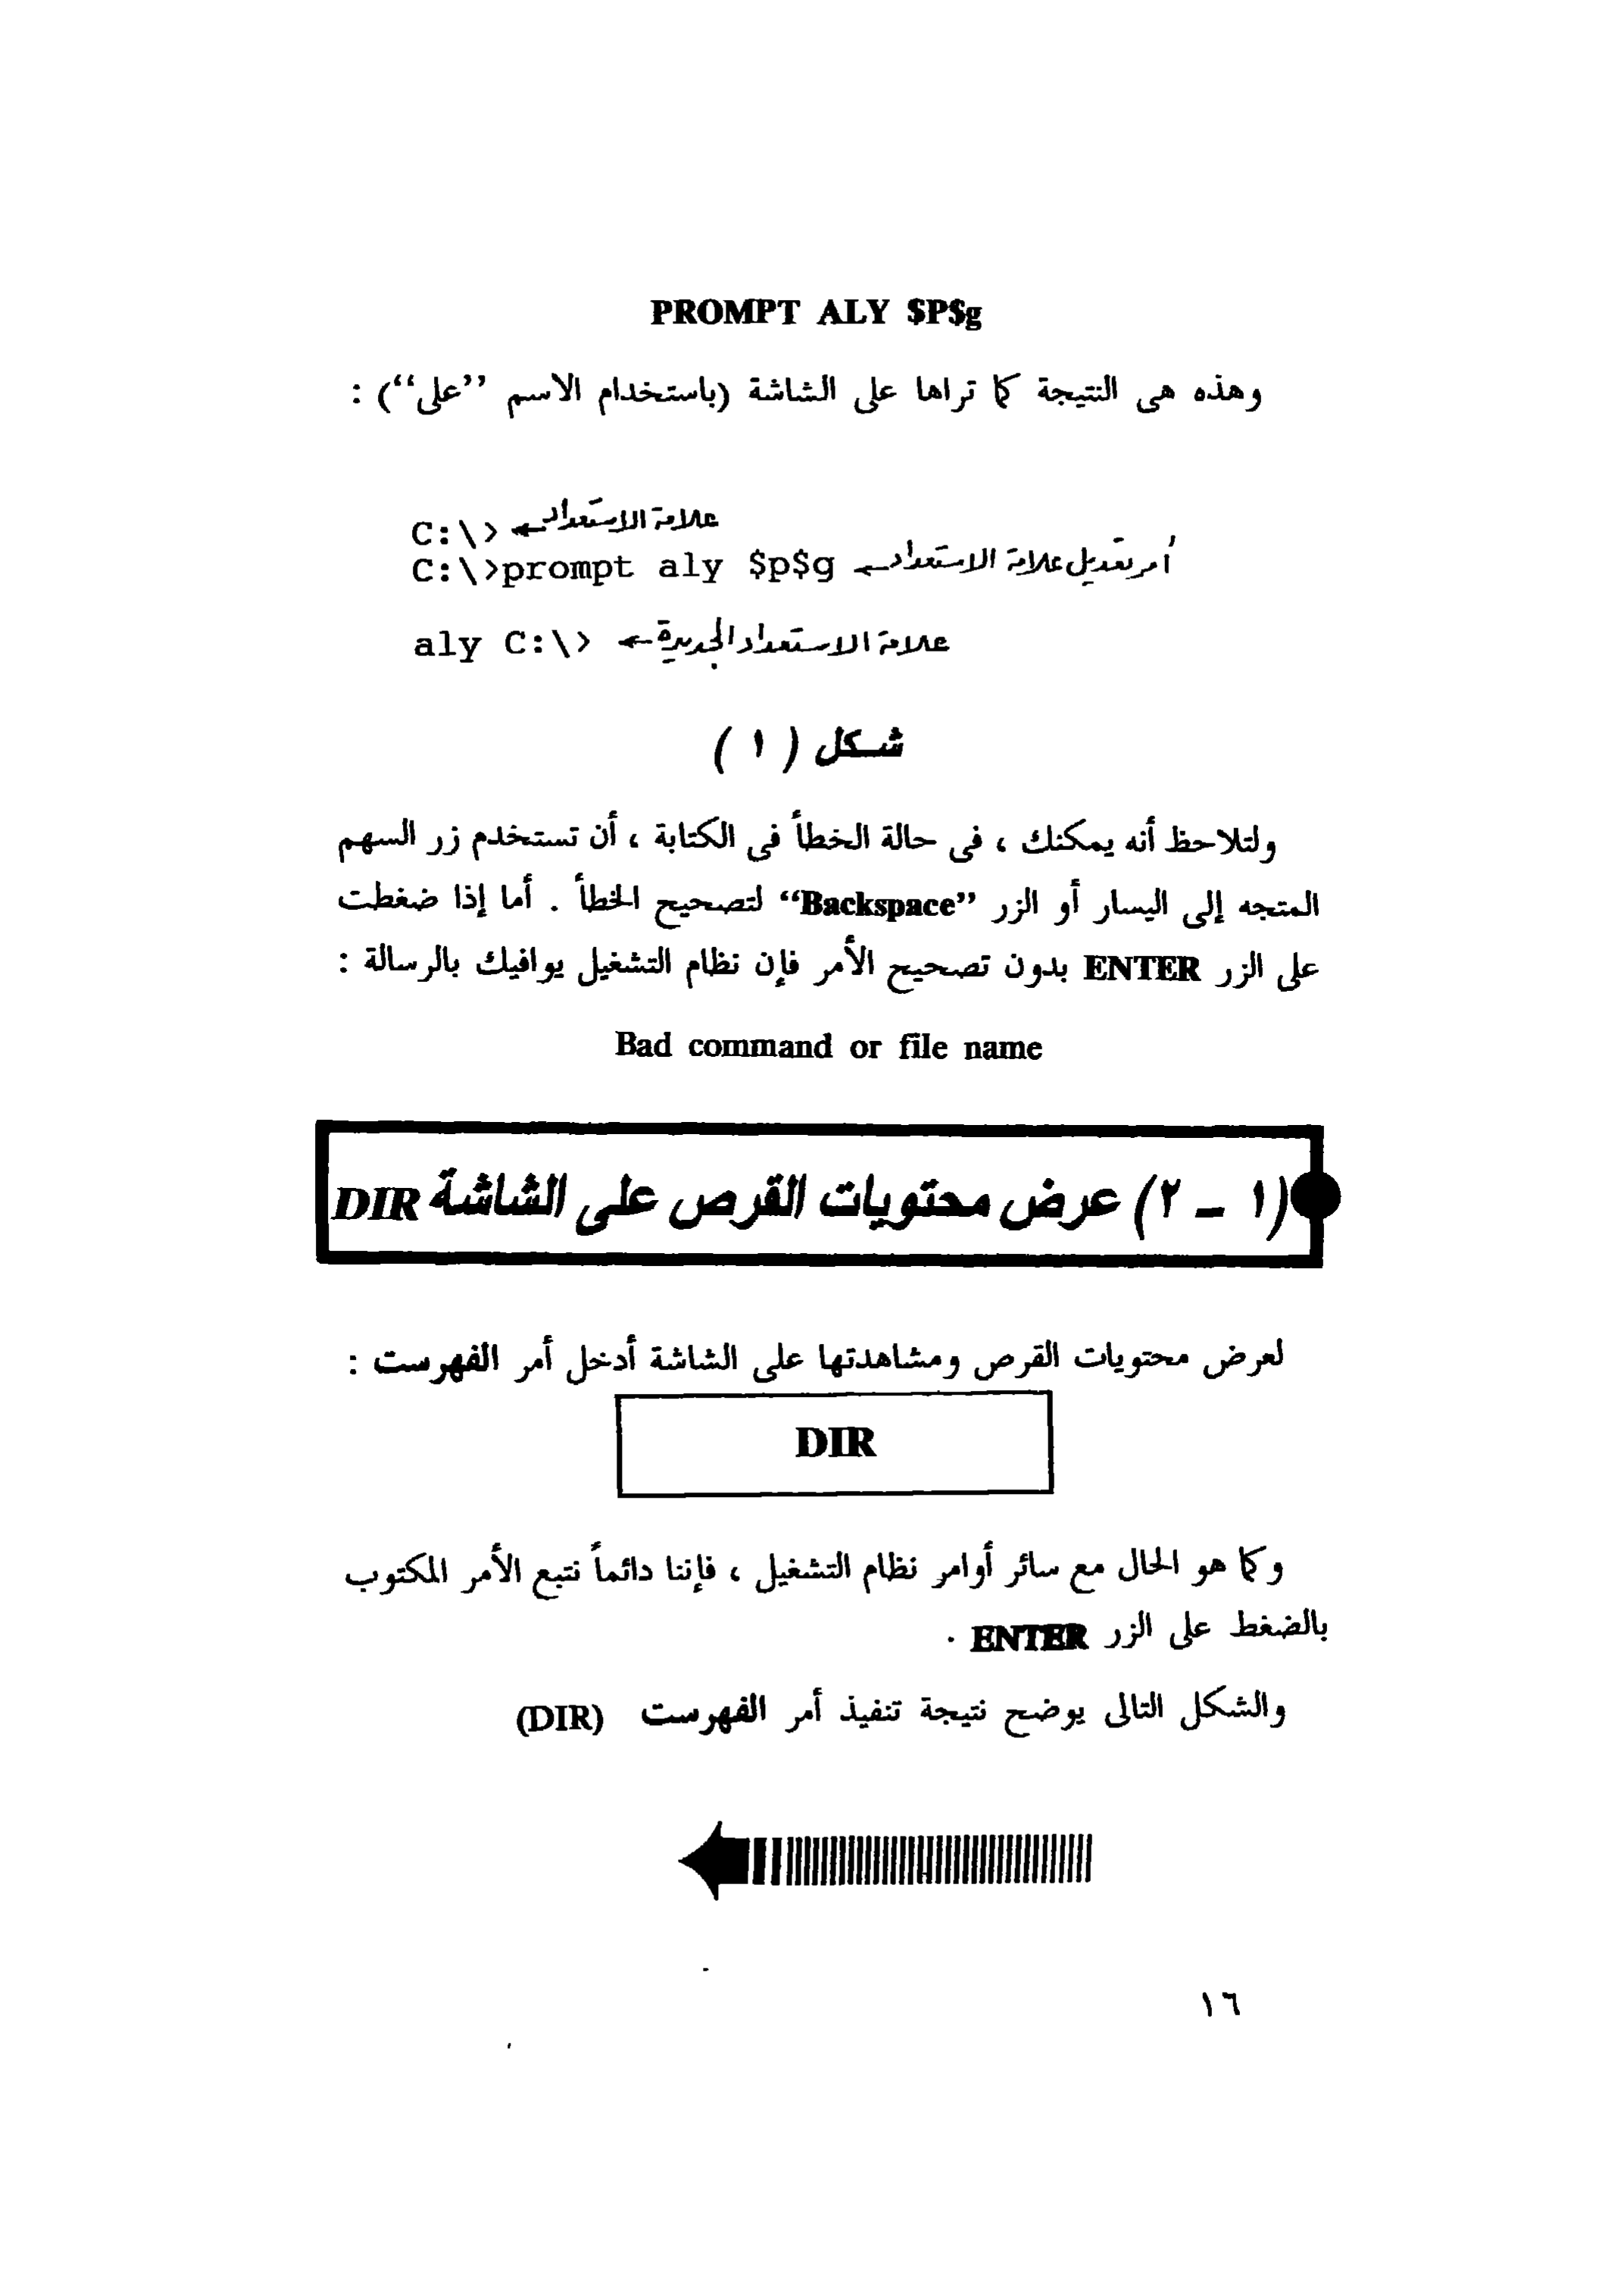 PROMPT ALY $P$g
وهذه هى النتيجة كما تراها على الشاشة (باستخدام الاسم ”على“) :
C:\> ← علامة الاستعداد
C:\>prompt aly $p$g ← أمر تعديل علامة الاستعداد
aly C:\> ← علامة الاستعداد الجديدة
شكل ( ١ )
ولتلاحظ أنه يمكنك ، فى حالة الخطأ فى الكتابة ، أن تستخدم زر السهم
المتجه إلى اليسار أو الزر “Backspace” لتصحيح الخطأ . أما إذا ضغطت
على الزر ENTER بدون تصحيح الأمر فإن نظام التشغيل يوافيك بالرسالة :
Bad command or file name
(١ ـ ٢) عرض محتويات القرص على الشاشة DIR
لعرض محتويات القرص ومشاهدتها على الشاشة أدخل أمر الفهرست :
DIR
وكما هو الحال مع سائر أوامر نظام التشغيل ، فإننا دائماً نتبع الأمر المكتوب
بالضغط على الزر ENTER .
والشكل التالى يوضح نتيجة تنفيذ أمر الفهرست (DIR)
١٦